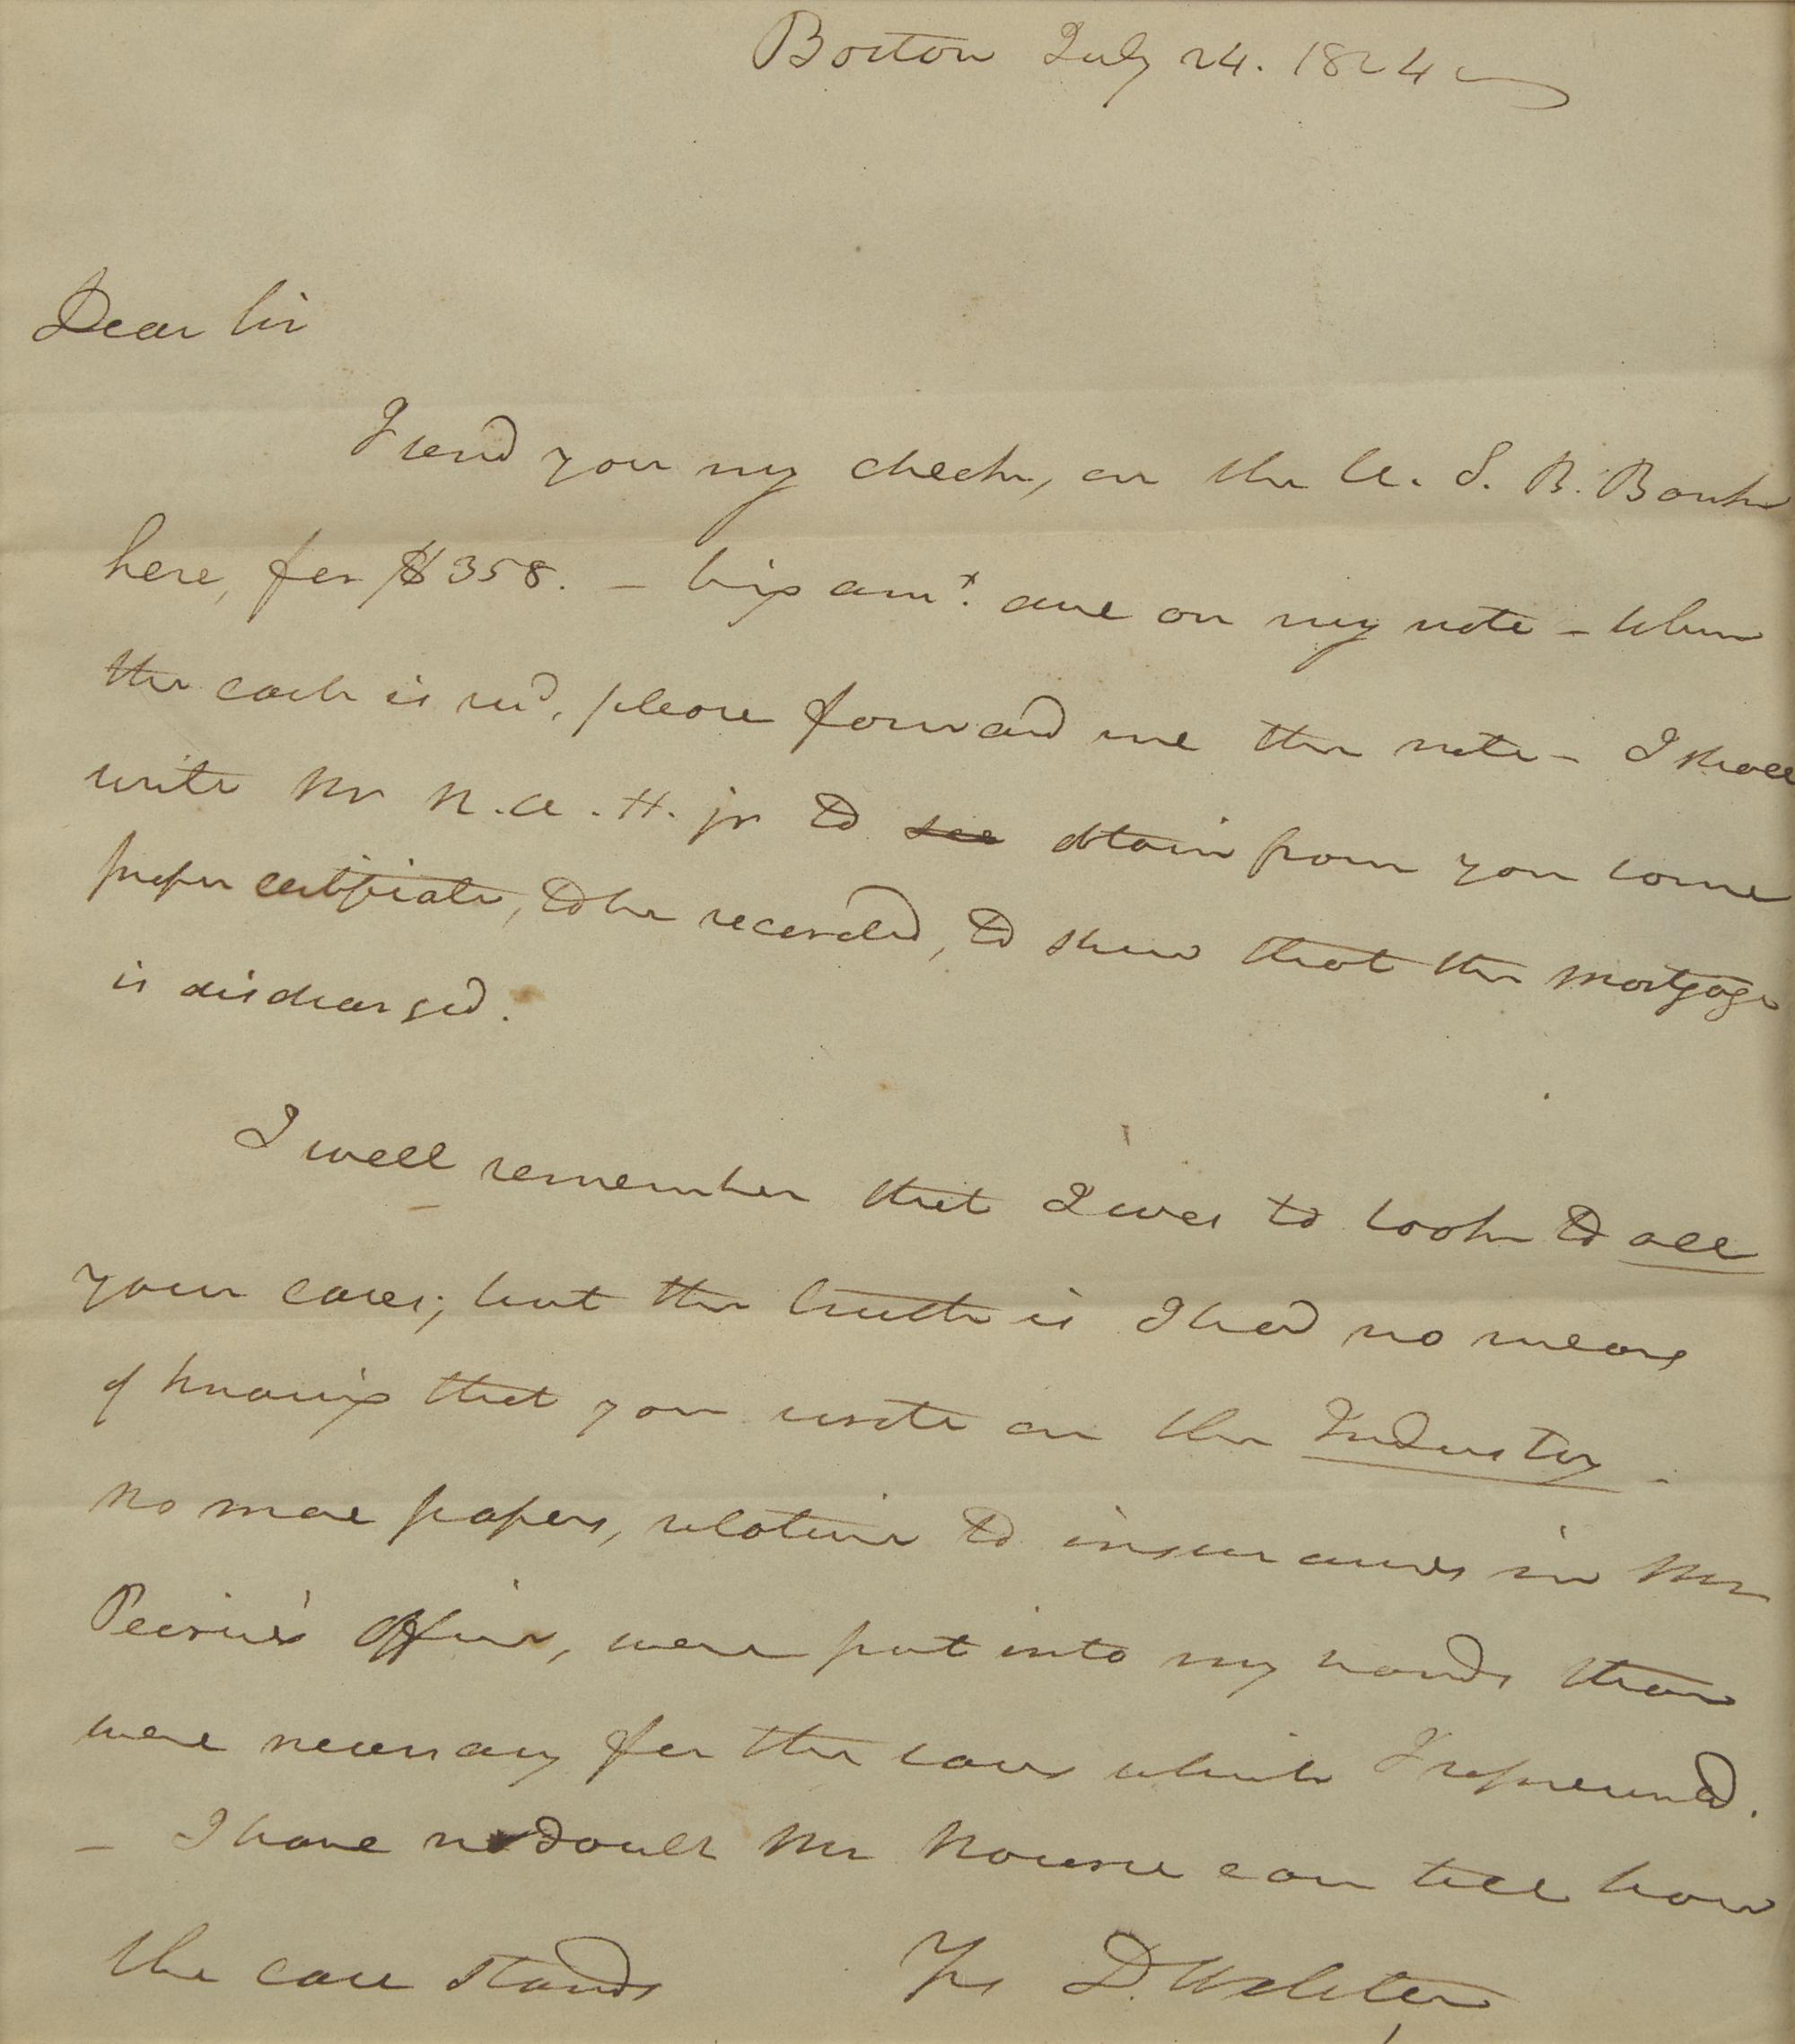 Boston July 24. 1824
Dear Sir
I send you my check, on the U. S. B. Bank
here, for $358. – being amt. due on my note – When
the cash is recd, please forward me the note – I shall
write Mr N. A. H. jr to see obtain from you some
proper certificate, to be recorded, to shew that the mortgage
is discharged.
I well remember that I was to look to all
your cases; but the truth is I had no means
of knowing that you wrote on the Industry –
No more papers, relative to insurances in Mr
Peirce's Office, were put into my hands than
were necessary for the cases which I represented.
– I have no doubt Mr Nourse can tell how
the case stands Yrs D. Webster